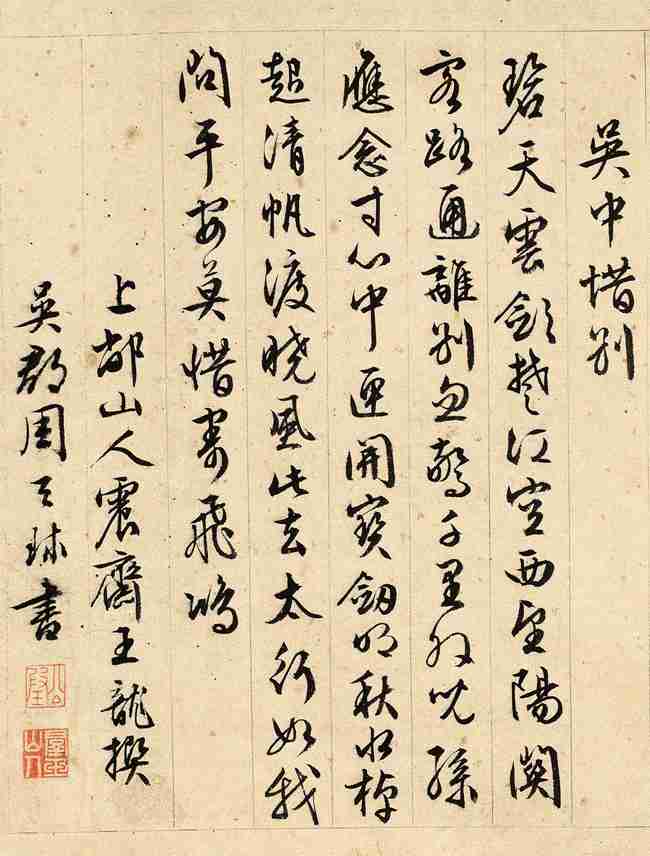 吳中惜別
碧天雲斂楚江空西望陽關
客路通離別忽驚千里外兒孫
應念寸心中匣開寶劒明秋水棹
起清帆渡曉風此去太行如我
問平安莫惜寄飛鴻
上都山人震齋王龍撰
吳郡周天球書
公瑕